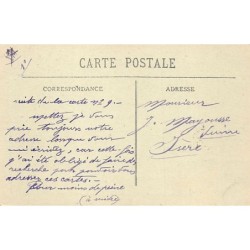 CARTE POSTALE
CORRESPONDANCE
ADRESSE
suite de la carte n° 9.
mettez, je vous
prie toujours votre
adresse lorsque vous
m'écrivez, car cette fois
j'ai été obligé de faire des
recherches pour pouvoir vous
adresser ces cartes.
pour moins de peine
(à suivre)
Monsieur
J. Mayousse
Isère